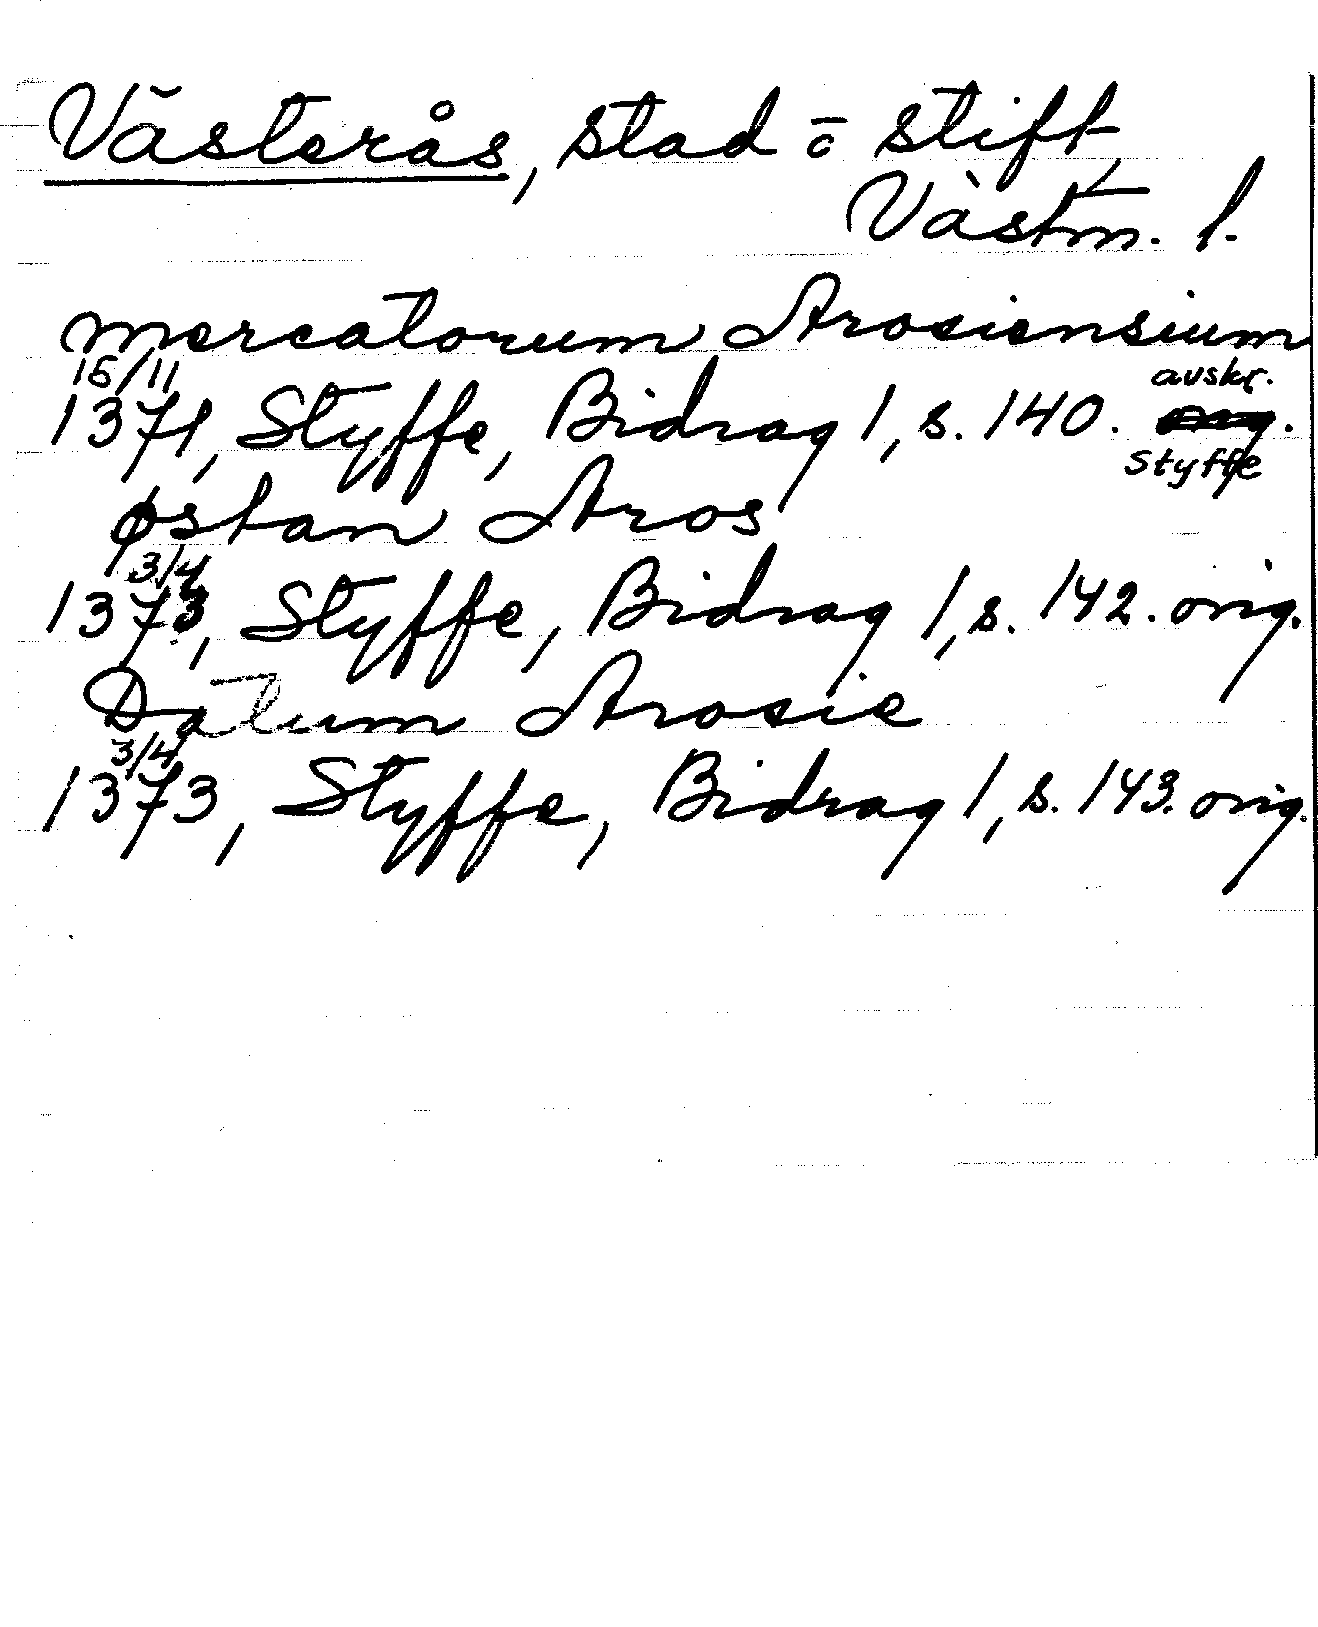 Västerås, stad ō stift,
Västm. l.
mercatorum Arosiensium
15/11 avskr.
1371, Styffe, Bidrag 1, s. 140. orig.
Styffe
østan Aros
3/4
1373, Styffe, Bidrag 1, s. 142. orig.
Datum Arosie
3/4
1373, Styffe, Bidrag 1, s. 143. orig.